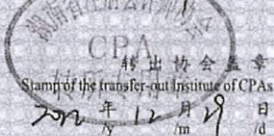 湖南省注册会计师协会
CPA
转出协会盖章
Stamp of the transfer-out Institute of CPAs
2012 年 12 月 29 日
/y /m /d